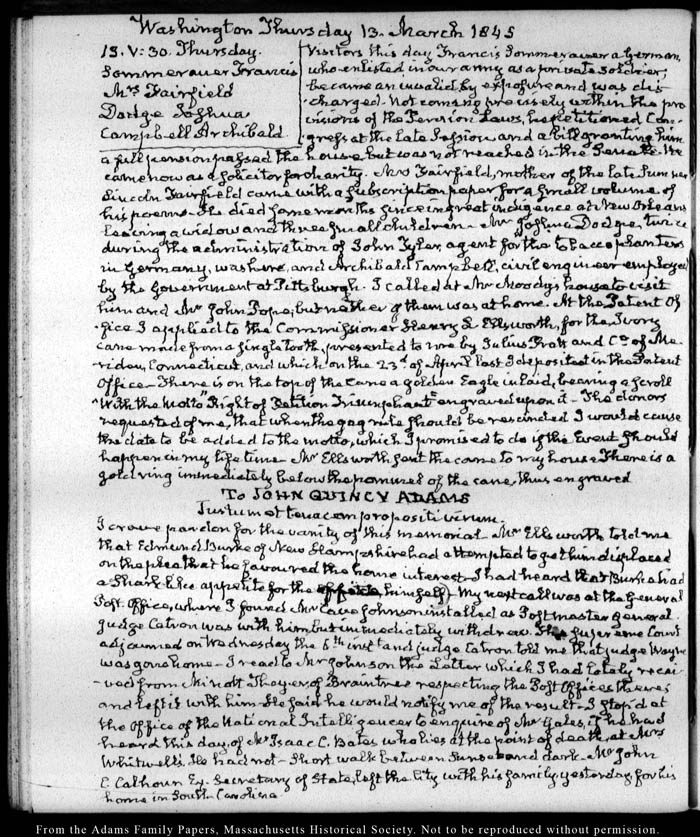 Washington Thursday 13. March 1845
13. V: 30. Thursday.
Sommerauer Francis
Mrs Fairfield
Dodge Joshua
Campbell Archibald
Visitors this day Francis Sommerauer a German,
who enlisted in our army as a private Soldier,
became an invalid by exposure and was dis-
-charged. Not coming precisely within the pro-
visions of the Pension Laws, he petitioned Con-
gress at the late Session and a bill granting him
a full pension passed the house but was not reached in the Senate. He
came now as a solicitor for charity. Mrs Fairfield, mother of the late Sumner
Lincoln Fairfield came with a subscription paper for a small volume of
his poems. He died some months since in great indigence at New Orleans
leaving a widow and three small children. Mr Joshua Dodge, twice
during the administration of John Tyler, agent for the tobacco planters
in Germany, was here, and Archibald Campbell, civil engineer employed
by the Government at Pittsburgh. I called at Mr Moody's house to visit
him and Mr John Pope, but neither of them was at home. At the Patent Of-
-fice I applied to the Commissioner Henry L Ellsworth, for the Ivory
cane made from a single tooth, presented to me by Julius Pratt and Co. of Me-
riden, Connecticut, and which on the 23d of April last I deposited in the Patent
Office. There is on the top of the Cane a golden Eagle inlaid, bearing a scroll
With the Motto "Right of Petition Triumphant" engraved upon it - The donors
requested of me, that when the gag rule should be rescinded I would cause
the date to be added to the motto, which I promised to do if the Event should
happen in my life time. Mr Ellsworth sent the cane to my house. There is a
gold ring immediately below the pommel of the cane thus engraved
To JOHN QUINCY ADAMS
Justum et tenacem propositi virum.
I crave pardon for the vanity of this memorial - Mr Ellsworth told me
that Edmund Burke of New Hampshire had attempted to get him displaced
on the plea that he favoured the home interest - I had heard that Burke had
a Shark like appetite for the office himself) - My next call was at the General
Post Office, where I found Mr Cave Johnson installed as Postmaster General.
Judge Catron was with him but immediately withdrew. The Supreme Court
adjourned on Wednesday the 5th inst and judge Catron told me that judge Wayne
was gone home - I read to Mr Johnson the Letter which I had lately recei-
-ved from Minott Thayer of Braintree respecting the Post Offices there
and left it with him. He said he would notify me of the result - I stop'd at
the Office of the National Intelligencer to enquire of Mr Gales, if he had
heard this day, of Mr Isaac C. Bates who lies at the point of death, at Mrs
Whitwell's. He had not - Short walk between Sunset and dark - Mr John
C Calhoun Ex-Secretary of State, left the City with his family yesterday for his
home in South Carolina
From the Adams Family Papers, Massachusetts Historical Society. Not to be reproduced without permission.